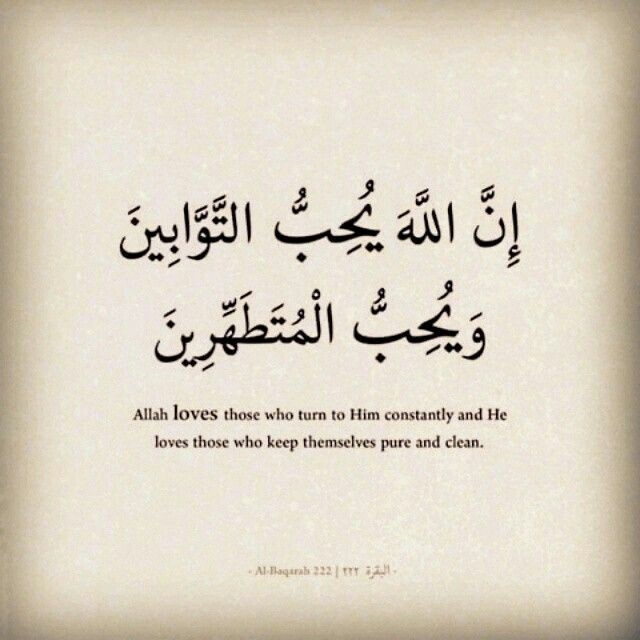 إِنَّ اللَّهَ يُحِبُّ التَّوَّابِينَ
وَيُحِبُّ الْمُتَطَهِّرِينَ
Allah loves those who turn to Him constantly and He
loves those who keep themselves pure and clean.
- Al-Baqarah 222 | البقرة ٢٢٢ -